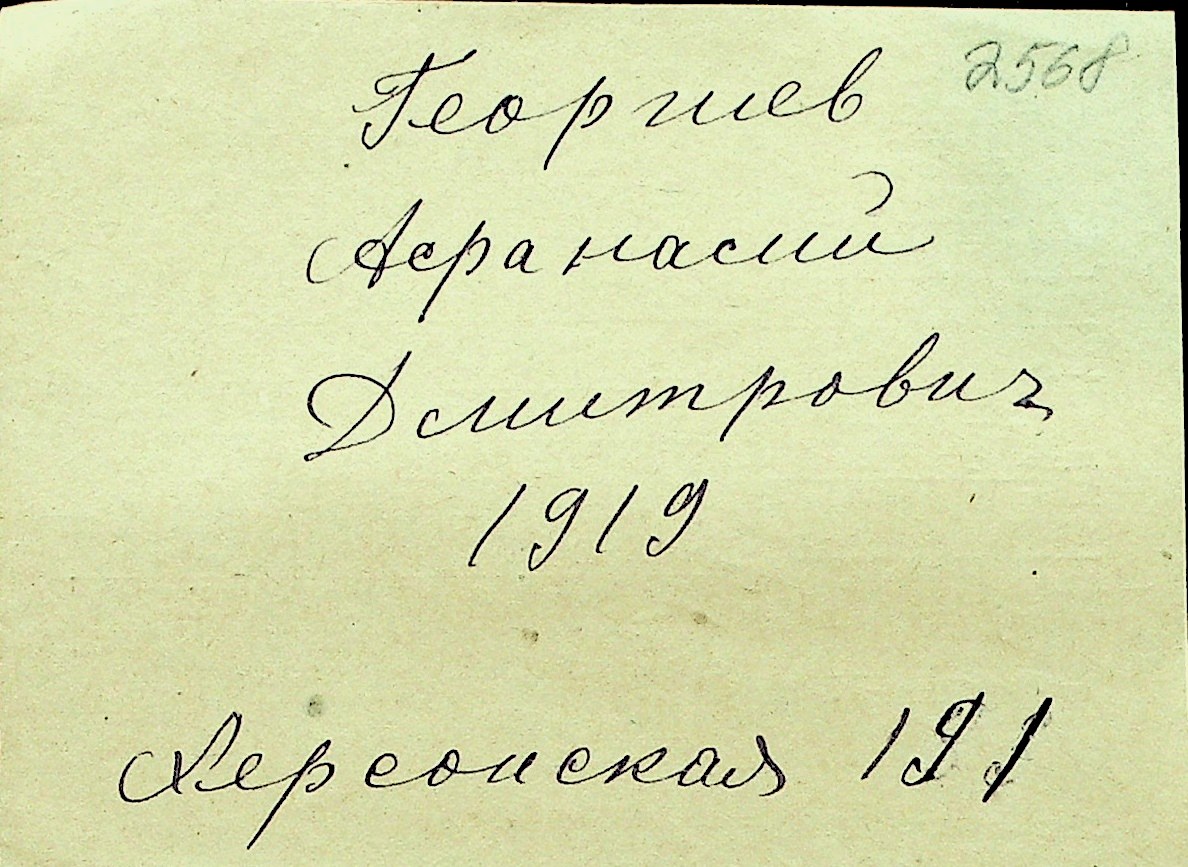 2568
Георгиев
Афанасий
Дмитрович
1919
Херсонская 191